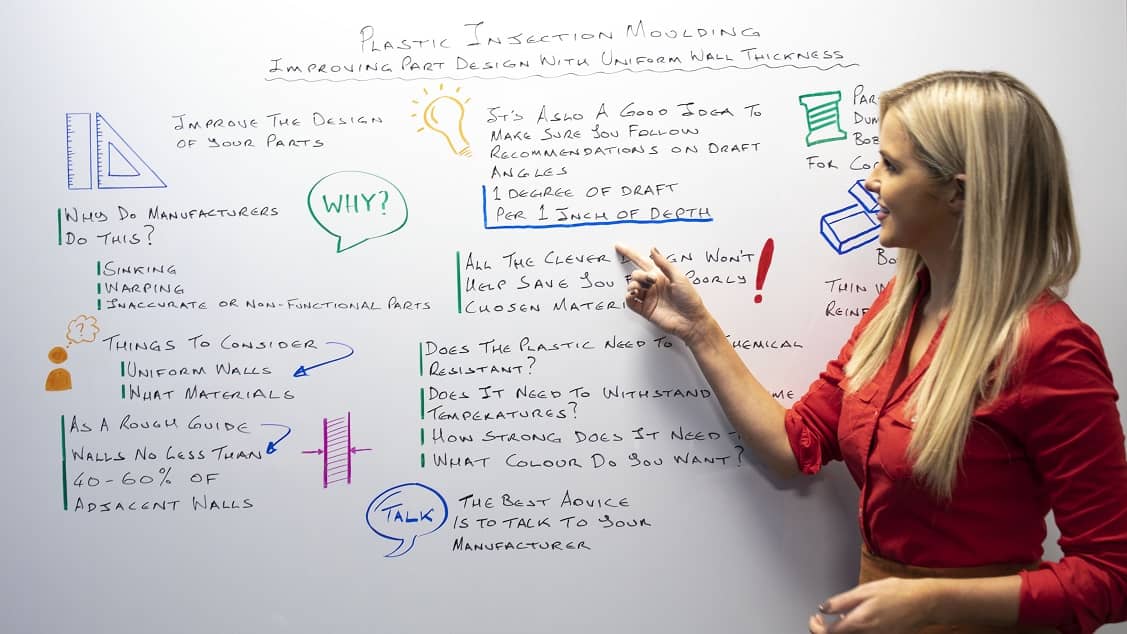 PLASTIC INJECTION MOULDING
IMPROVING PART DESIGN WITH UNIFORM WALL THICKNESS
IMPROVE THE DESIGN
OF YOUR PARTS
WHY?
WHY DO MANUFACTURERS
DO THIS?
SINKING
WARPING
INACCURATE OR NON-FUNCTIONAL PARTS
?
THINGS TO CONSIDER
UNIFORM WALLS
WHAT MATERIALS
AS A ROUGH GUIDE
WALLS NO LESS THAN
40-60% OF
ADJACENT WALLS
IT'S ASLO A GOOD IDEA TO
MAKE SURE YOU FOLLOW
RECOMMENDATIONS ON DRAFT
ANGLES
1 DEGREE OF DRAFT
PER 1 INCH OF DEPTH
ALL THE CLEVER WON'T
HELP SAVE YOU POORLY
CHOSEN
!
DOES THE PLASTIC NEED TO CHEMICAL
RESISTANT?
DOES IT NEED TO WITHSTAND
TEMPERATURES?
HOW STRONG DOES IT NEED
WHAT COLOUR DO YOU WANT?
TALK
THE BEST ADVICE
IS TO TALK TO YOUR
MANUFACTURER
FOR
THIN